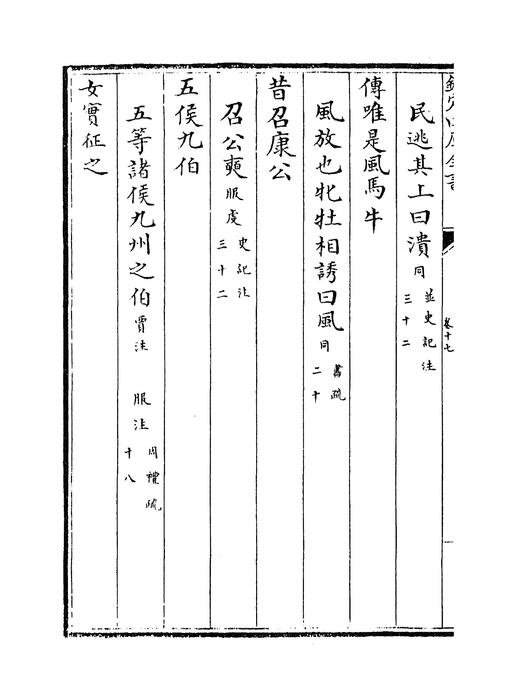 欽定四庫全書
卷十七
民逃其上曰潰同並史記注三十二
傳唯是風馬牛
風放也牝牡相誘曰風同書疏二十
昔召康公
召公奭服虔史記注三十二
五侯九伯
五等諸侯九州之伯賈注 服注周禮疏十八
女實征之